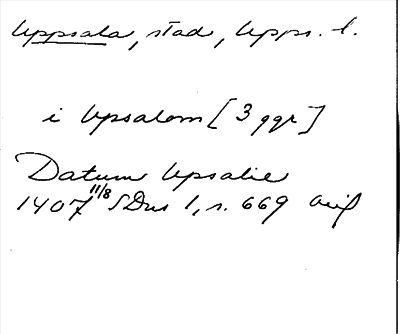 Uppsala, stad, Upps. l.
i Upsalom [3 ggr]
Datum Upsalie
1407 11/8 SDns 1, s. 669